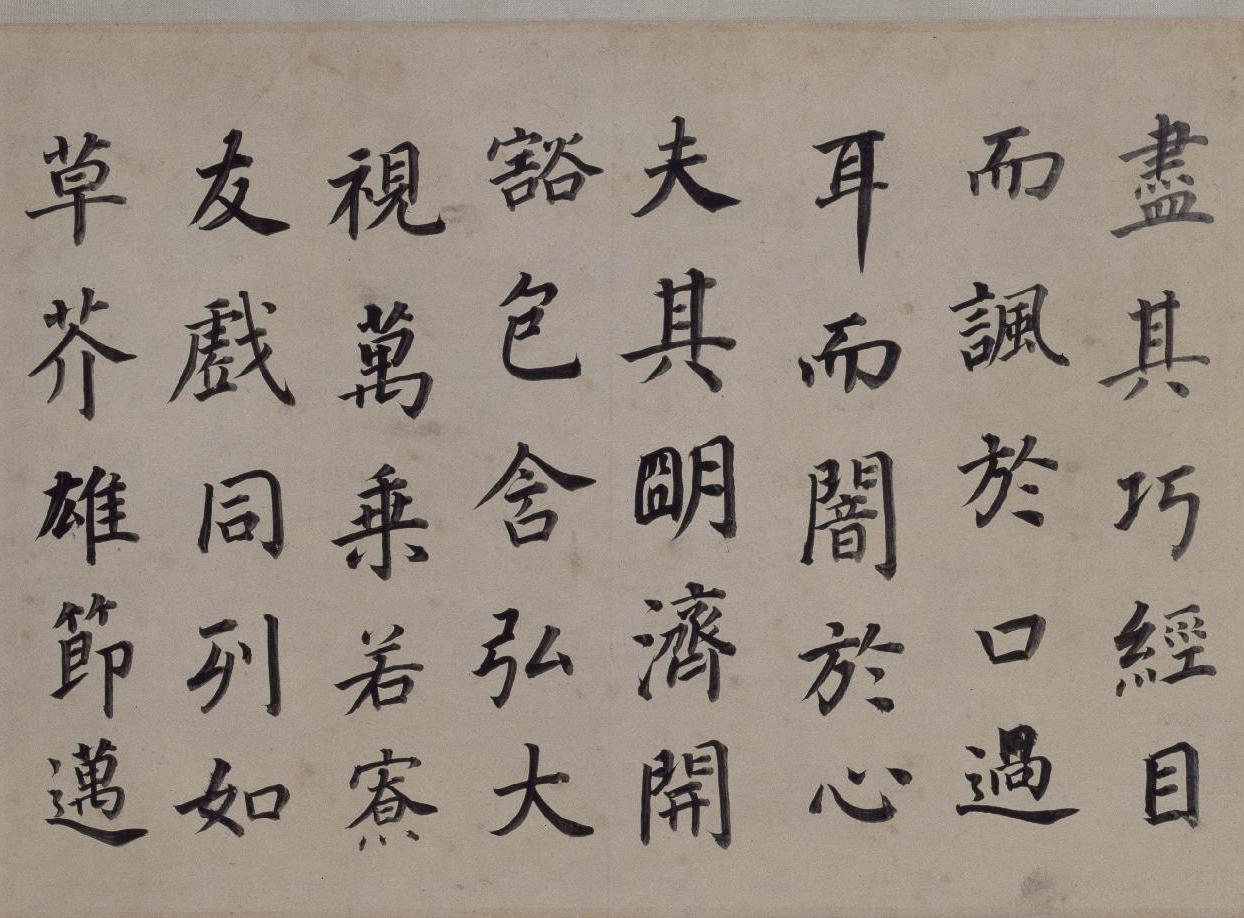 盡其巧經目
而諷於口過
耳而闇於心
夫其朙濟開
豁包含弘大
視萬乗若寮
友戲同列如
草芥雄節邁